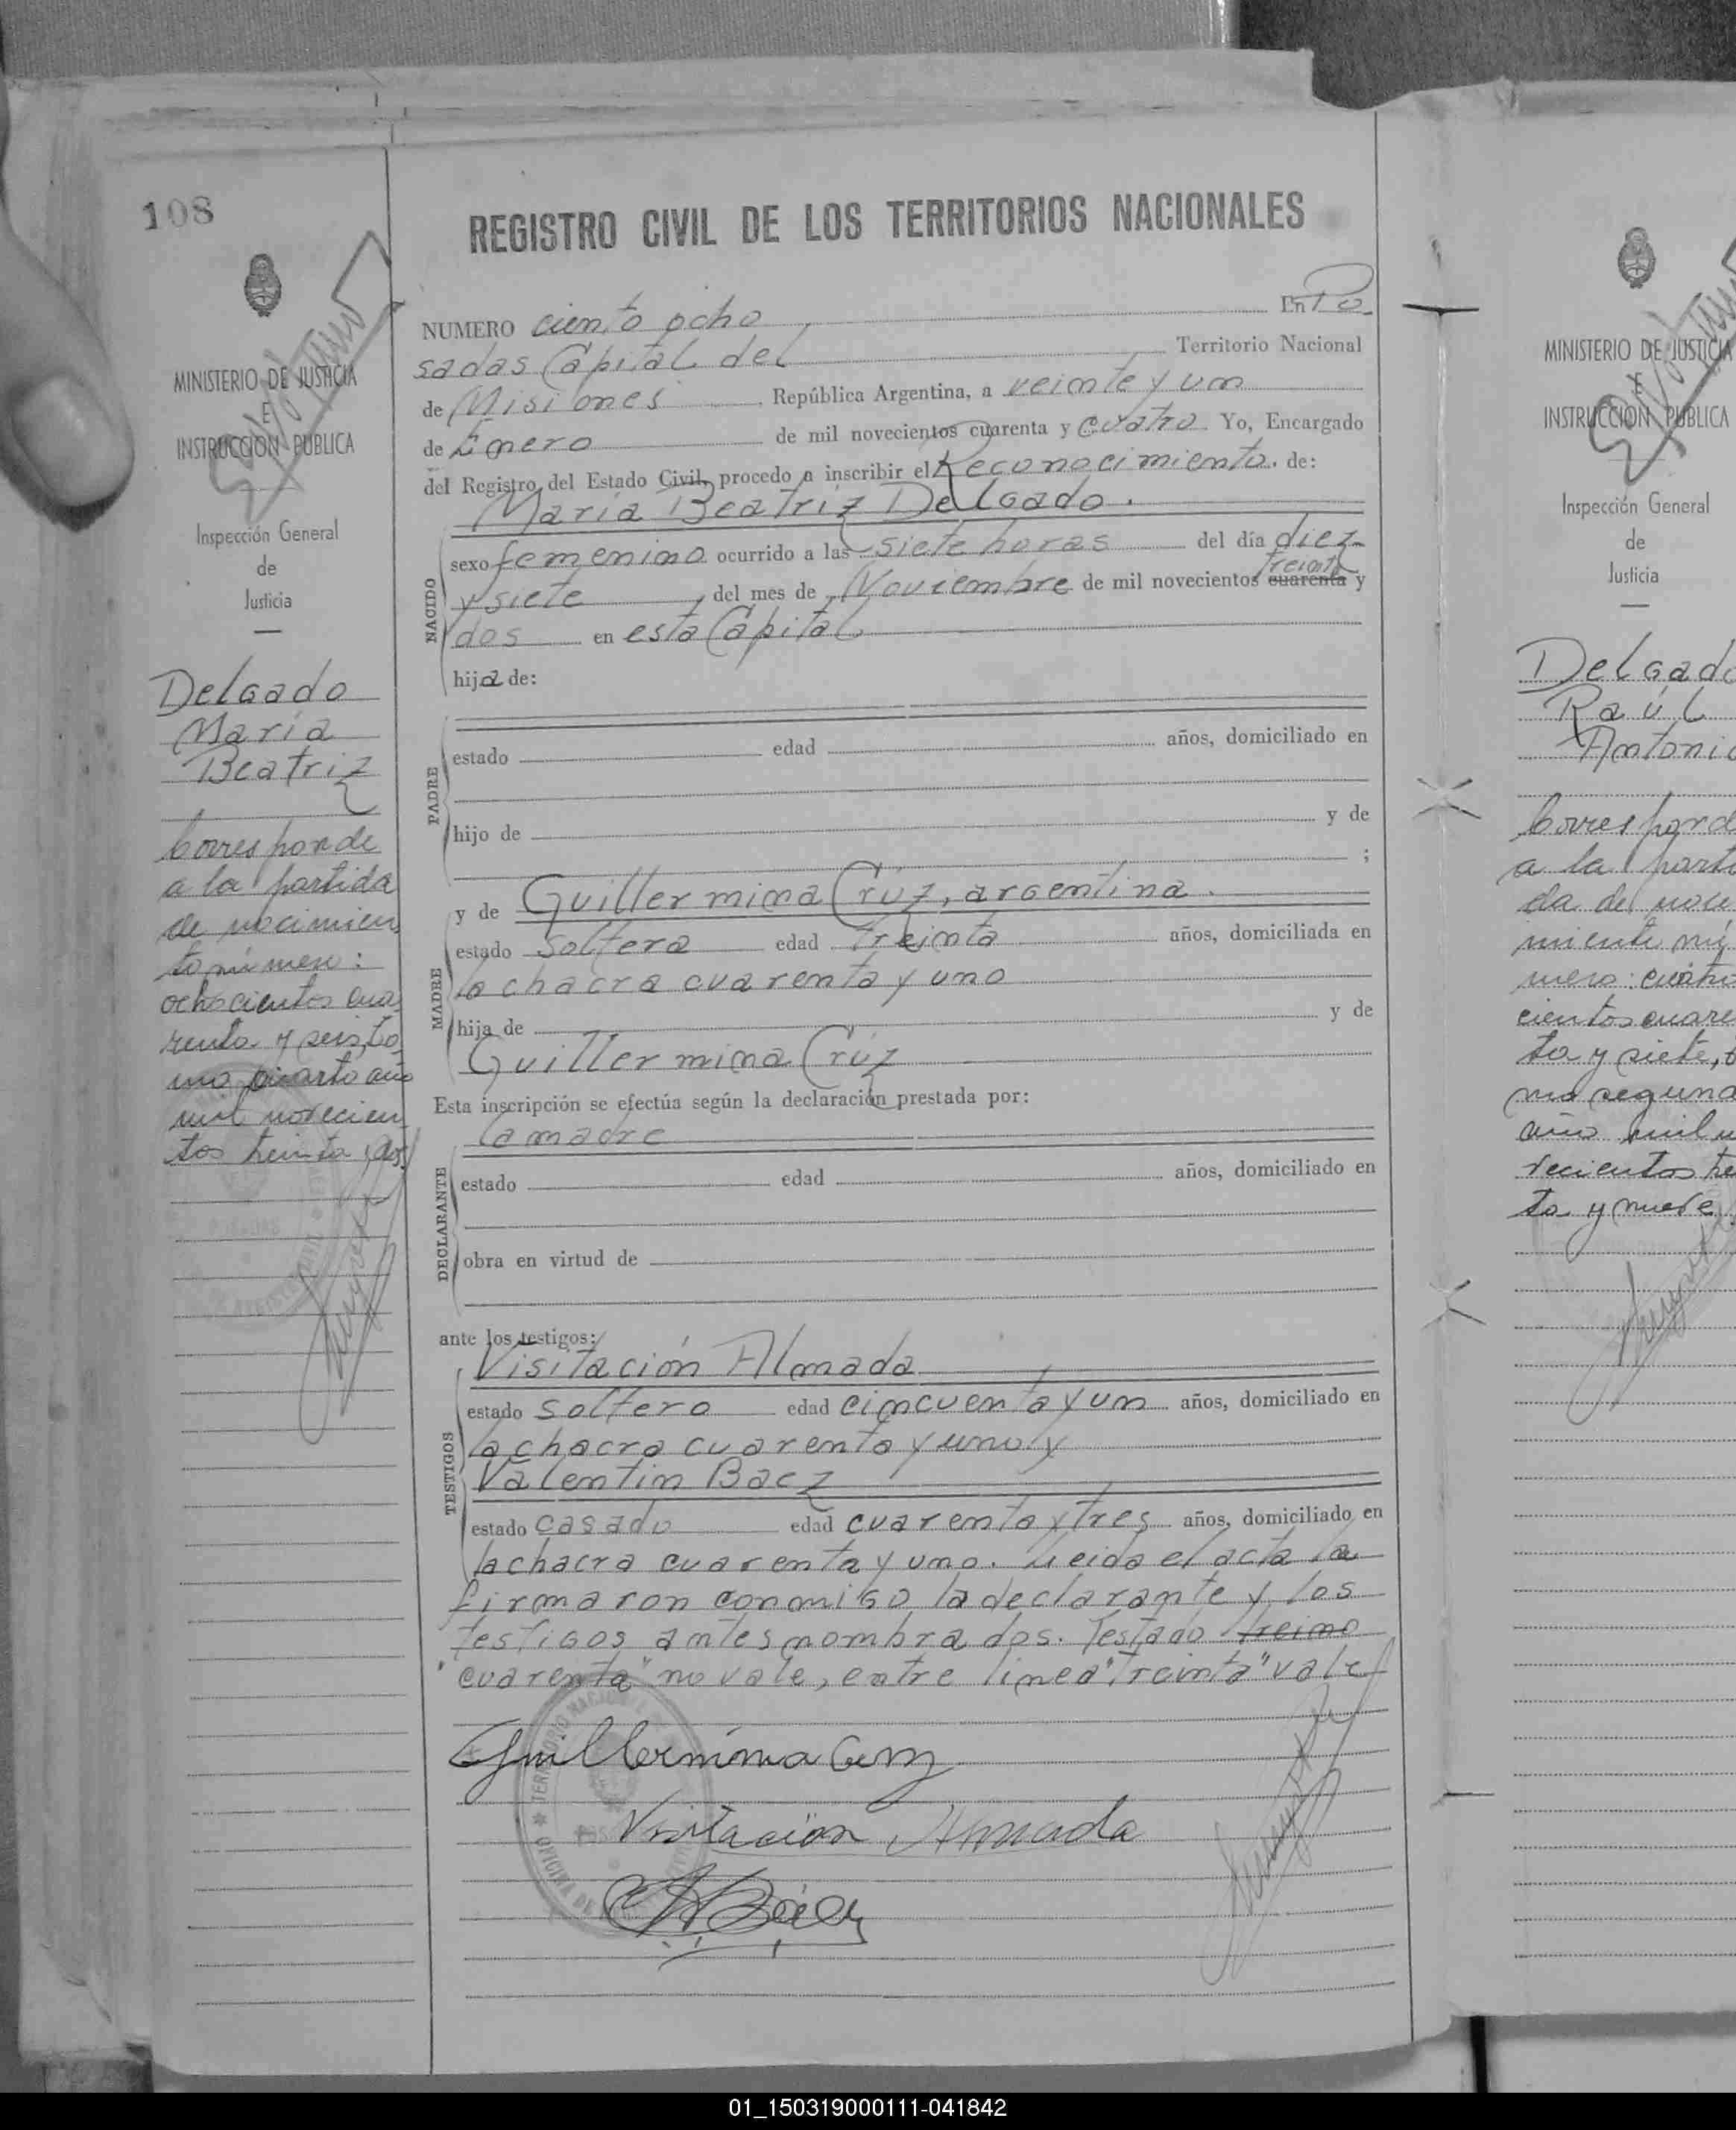 108
MINISTERIO DE JUSTICIA
E
INSTRUCCION PUBLICA
Inspección General
de
Justicia
Delgado
María
Beatriz
Corresponde
a la partida
de nacimien
to número:
ochocientos cua
renta y seis, to
mo cuarto año
mil novecien
tos treinta y dos
REGISTRO CIVIL DE LOS TERRITORIOS NACIONALES
NUMERO ciento ocho En Po
sadas Capital del Territorio Nacional
de Misiones, República Argentina, a veinte y un
de Enero de mil novecientos cuarenta y cuatro. Yo, Encargado
del Registro del Estado Civil, procedo a inscribir el Reconocimiento. de:
María Beatriz Delgado.
NACIDO
sexo femenino ocurrido a las siete horas del día diez
treinta
y siete, del mes de Noviembre de mil novecientos cuarenta y
dos en esta Capital
hija de:
PADRE
estado edad años, domiciliado en
hijo de y de
;
y de Guillermina Crúz, argentina.
MADRE
estado soltera edad treinta años, domiciliada en
la chacra cuarenta y uno
hija de y de
Guillermina Crúz
Esta inscripción se efectúa según la declaración prestada por:
la madre
DECLARANTE
estado edad años, domiciliado en
obra en virtud de
ante los testigos:
Visitación Almada
TESTIGOS
estado soltero edad cincuenta y un años, domiciliado en
la chacra cuarenta y uno y
Valentin Baez
estado casado edad cuarenta y tres años, domiciliado en
la chacra cuarenta y uno. Leida el acta la
firmaron conmigo la declarante y los
testigos antes nombrados. Testado treino
"cuarenta" no vale, entre linea "treinta" vale
Guillermina Cruz
Visitación Almada
Báez
MINISTERIO DE JUSTICIA
E
INSTRUCCION PUBLICA
Inspección General
de
Justicia
Delgado
Raúl
Antonio
Corresponde
a la parti
da de naci
miento nú
mero: cuatro
cientos cuaren
ta y siete, t
mo segund
año mil n
vecientos tre
ta y nueve
01_150319000111-041842